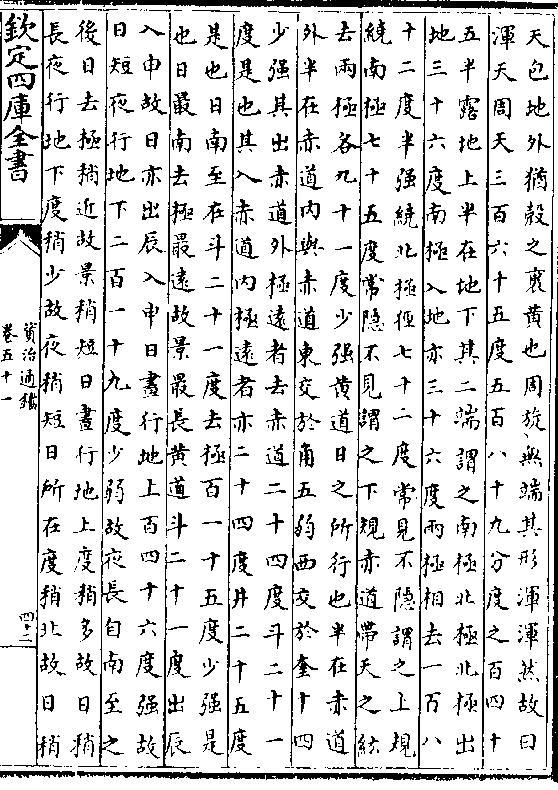 天包地外猶殼之裏黄也周旋無端其形渾渾然故曰
渾天周天三百六十五度五百八十九分度之百四十
五半露地上半在地下其二端謂之南極北極北極出
地三十六度南極入地亦三十六度兩極相去一百八
十二度半强繞北極徑七十二度常見不隱謂之上規
繞南極七十五度常隱不見謂之下規赤道帶天之紘
去兩極各九十一度少强黄道日之所行也半在赤道
外半在赤道内與赤道東交於角五弱西交於奎十四
少强其出赤道外極遠者去赤道二十四度斗二十一
度是也其入赤道内極遠者亦二十四度井二十五度
是也日南至在斗二十一度去極百一十五度少强是
也日最南去極最遠故景最長黄道斗二十一度出辰
入申故日亦出辰入申日晝行地上百四十六度强故
日短夜行地下二百一十九度少弱故夜長自南至之
後日去極稍近故景稍短日晝行地上度稍多故日稍
長夜行地下度稍少故夜稍短日所在度稍北故日稍
欽定四庫全書
資治通鑑
卷五十一
四二